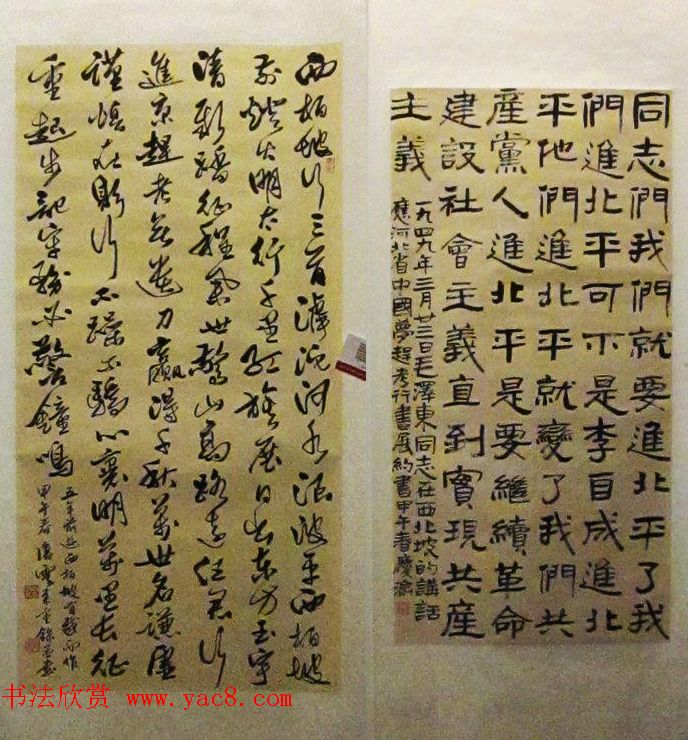 同志們我們就要進北平了我
們進北平可不是李自成進北
平他們進北平就變了我們共
產黨人進北平是要繼續革命
建設社會主義直到實現共產
主義
一九四九年三月廿三日毛澤東同志在西北坡的講話
應河北省中國夢趕考行書展約書甲午春慶
西柏坡行三首滹沱河水浪波平西柏坡
前燈火明太行千里紅旗展日出東方玉宇
清新征程舉世驚山高路遠任君行
進京趕考無卷刀贏得千秋萬世名謙虛
謹慎在躬行不躁不驕心裏明萬里長征
重起步記牢務必警鐘鳴
五年前遊西柏坡有感而作
甲午春
书法欣赏 www.yac8.com